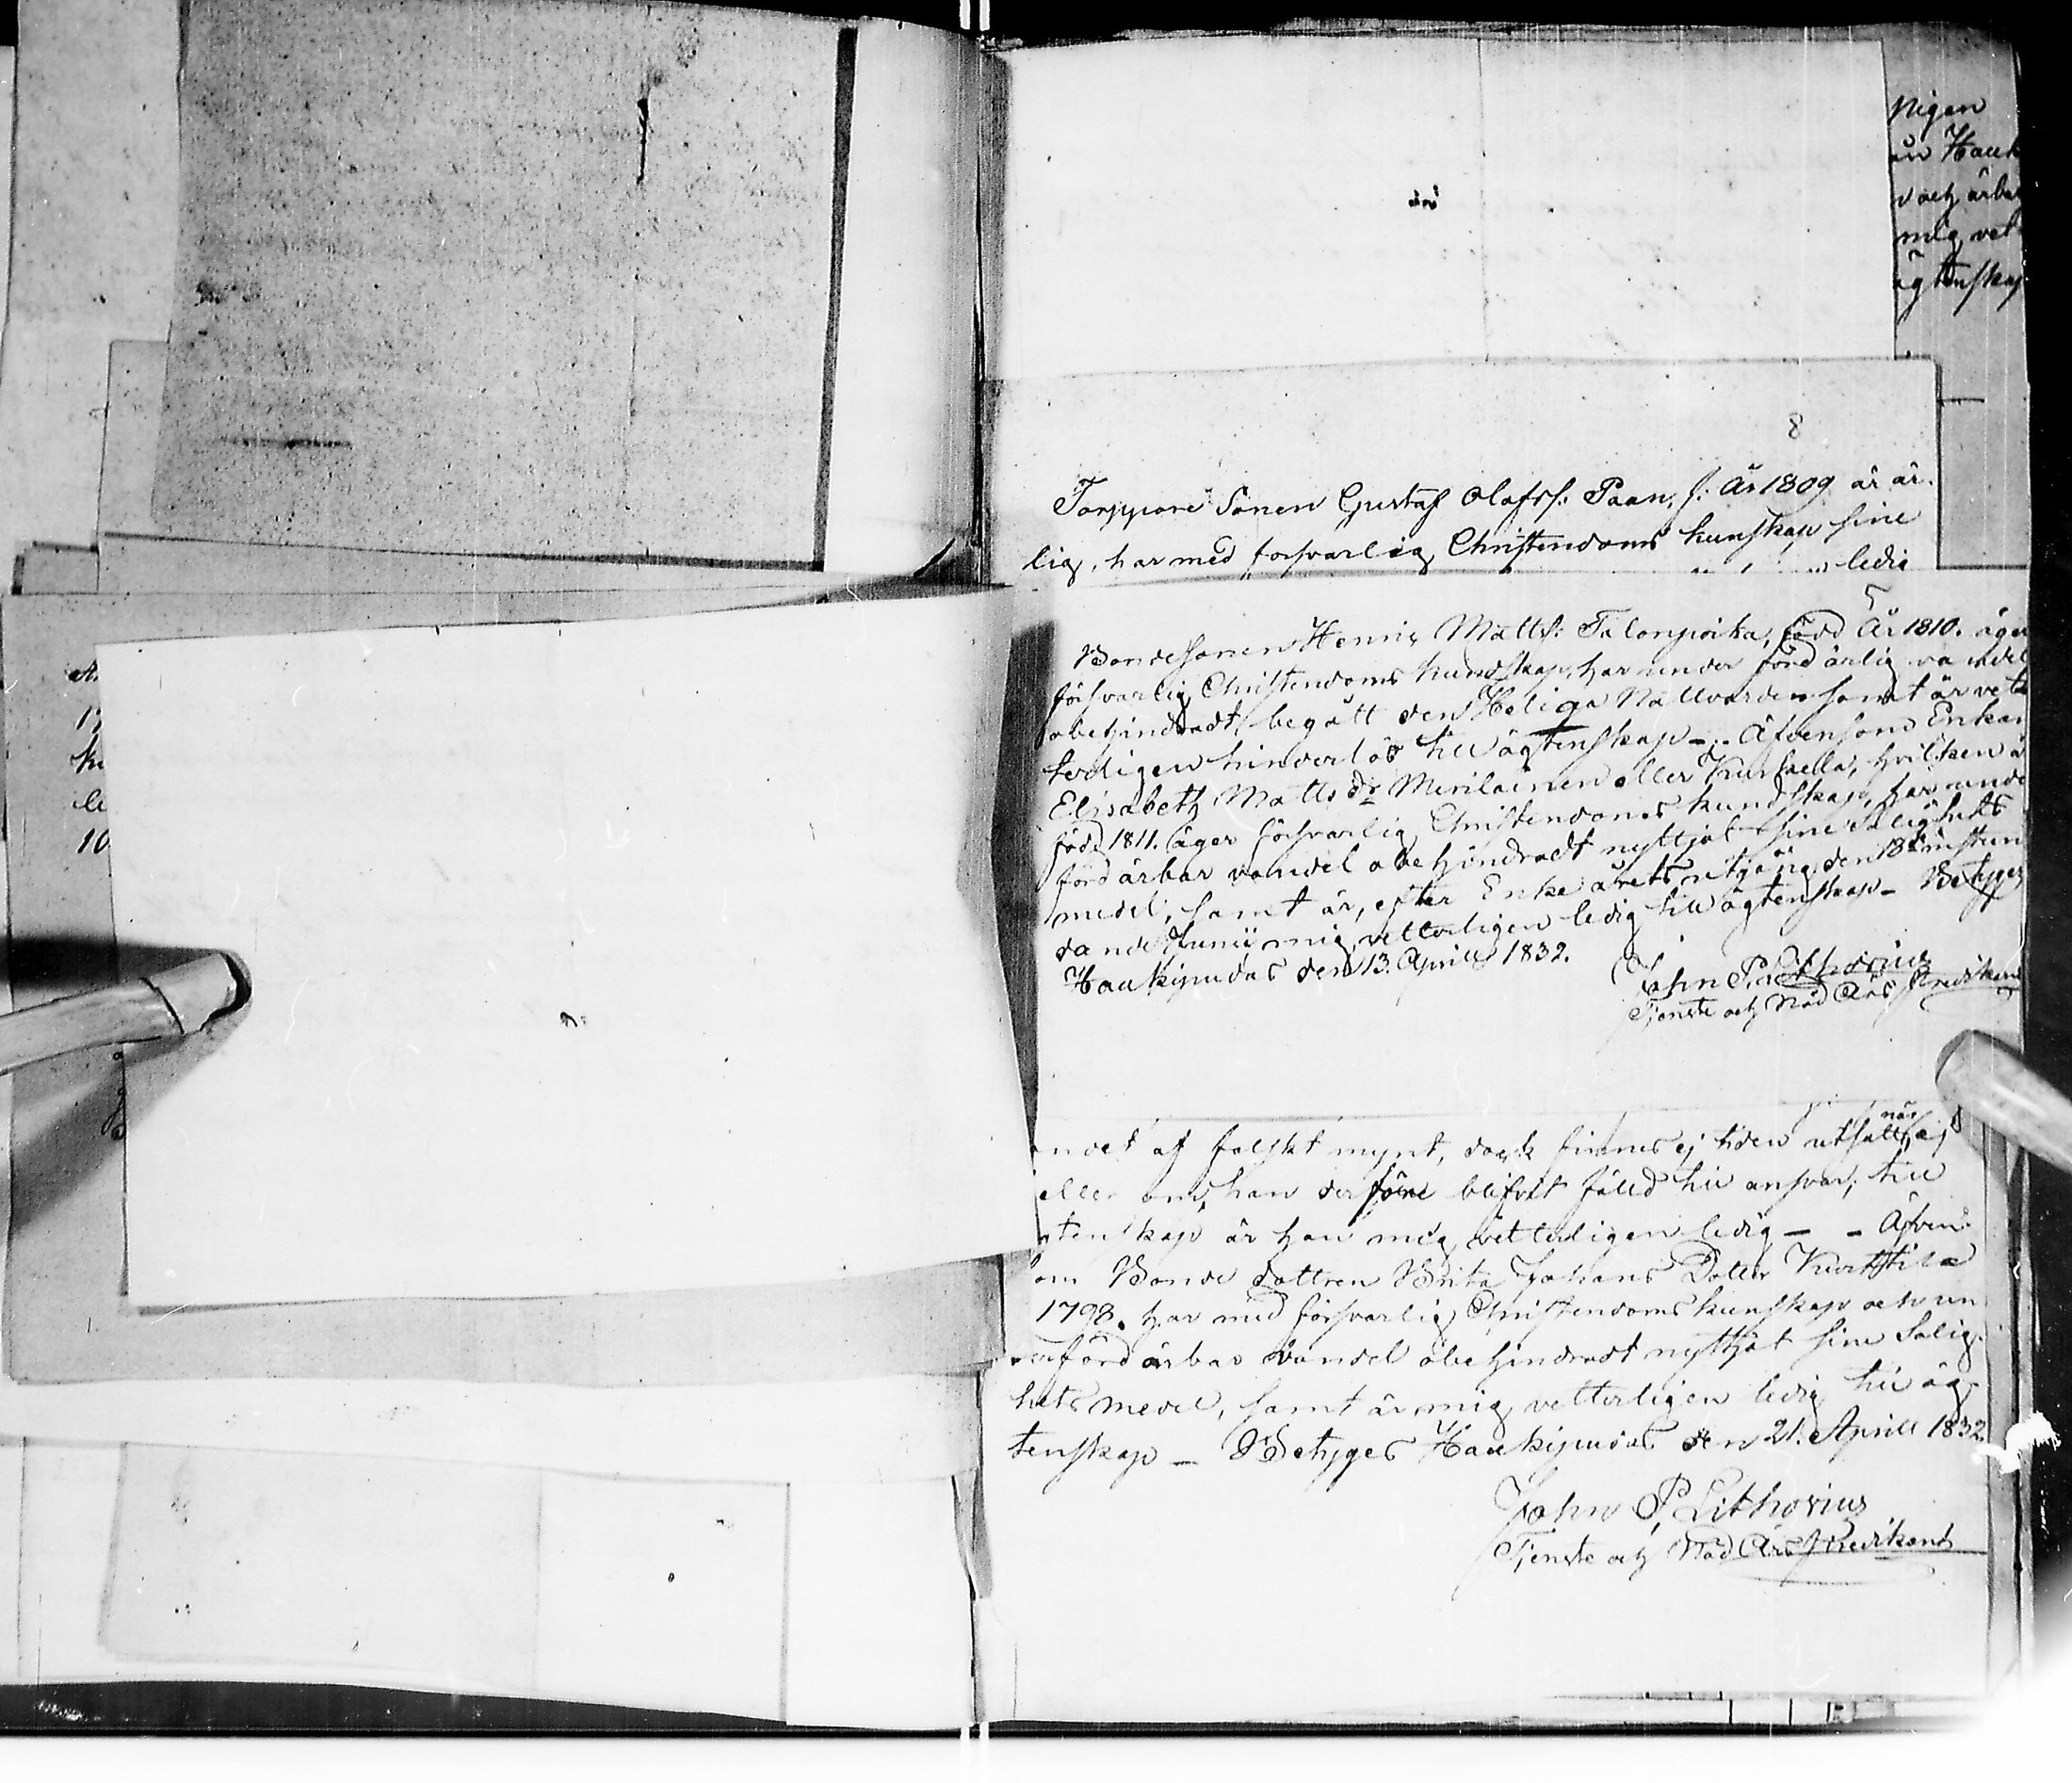 pigen
än Hauk
v och ärba
mig vet
ägtenskap
8
Torppare Sonen Gustaf Olofss: Paan, f: År 1809 är är-
lig, har med försvarlig Christendoms kunskap sine
ledig
5
Bondesonen Henric Matts: Talonpoika, född År 1810. äger
försvarlig Christendoms kundskap, har under förd ärlig vandel
obehindradt begått den Heliga Nattvarden samt är vet-
terligen hinderlös till ägtenskap - Äfvensom Enkan
Elisabeth Matts dr Meriläinen eller Kurkaella, hvilken ä
född 1811. äger försvarlig Christendoms kundskap, har unde
förd ärbar vandel obehindradt nyttjat sine Salighets
medel, samt är, efter Enke årets utgång den 18de instun
dande Junii mig vetterligen ledig till ägtenskap - Betyges
Haukipudas den 13. Aprill 1832.
John P. Lithovius
Tjenste och Nåd Års Predikant
ndet af falskt mynt, dock finnes ej tiden utsatt när, ej
eller om han derföre blifvit fälld till ansvar; till
gtenskap är han mig vetterligen ledig - - Äfven
om Bonde dottren Brita Johans Dotter Kurttila
1798. har med försvarlig Christendoms kunskap och un
der förd ärbar vandel obehindradt nyttjat sine Salig-
hets medel, samt är mig vetterligen ledig till äg-
tenskap - Betyges Haukipudas den 21. Aprill 1832.
John P Lithovius
Tjenste och Nåd Års Predikant